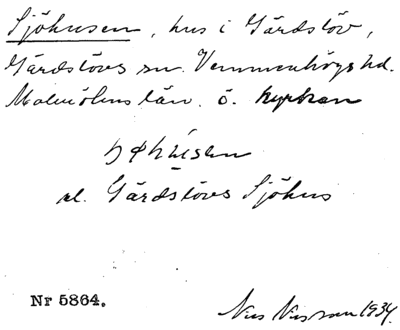 Sjöhusen, hus i Gärdslöv,
Gärdslövs sn. Vemmenhögs hd.
Malmöhus län. ö. kyrkan
el. Gärdslövs Sjöhus
Nr 5864.
Nils Nilsson 1934.